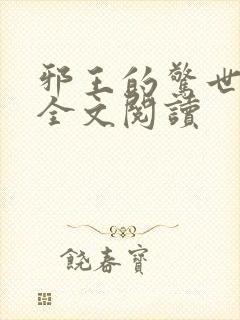 邪王的驚世
全文閱讀
饒春寶